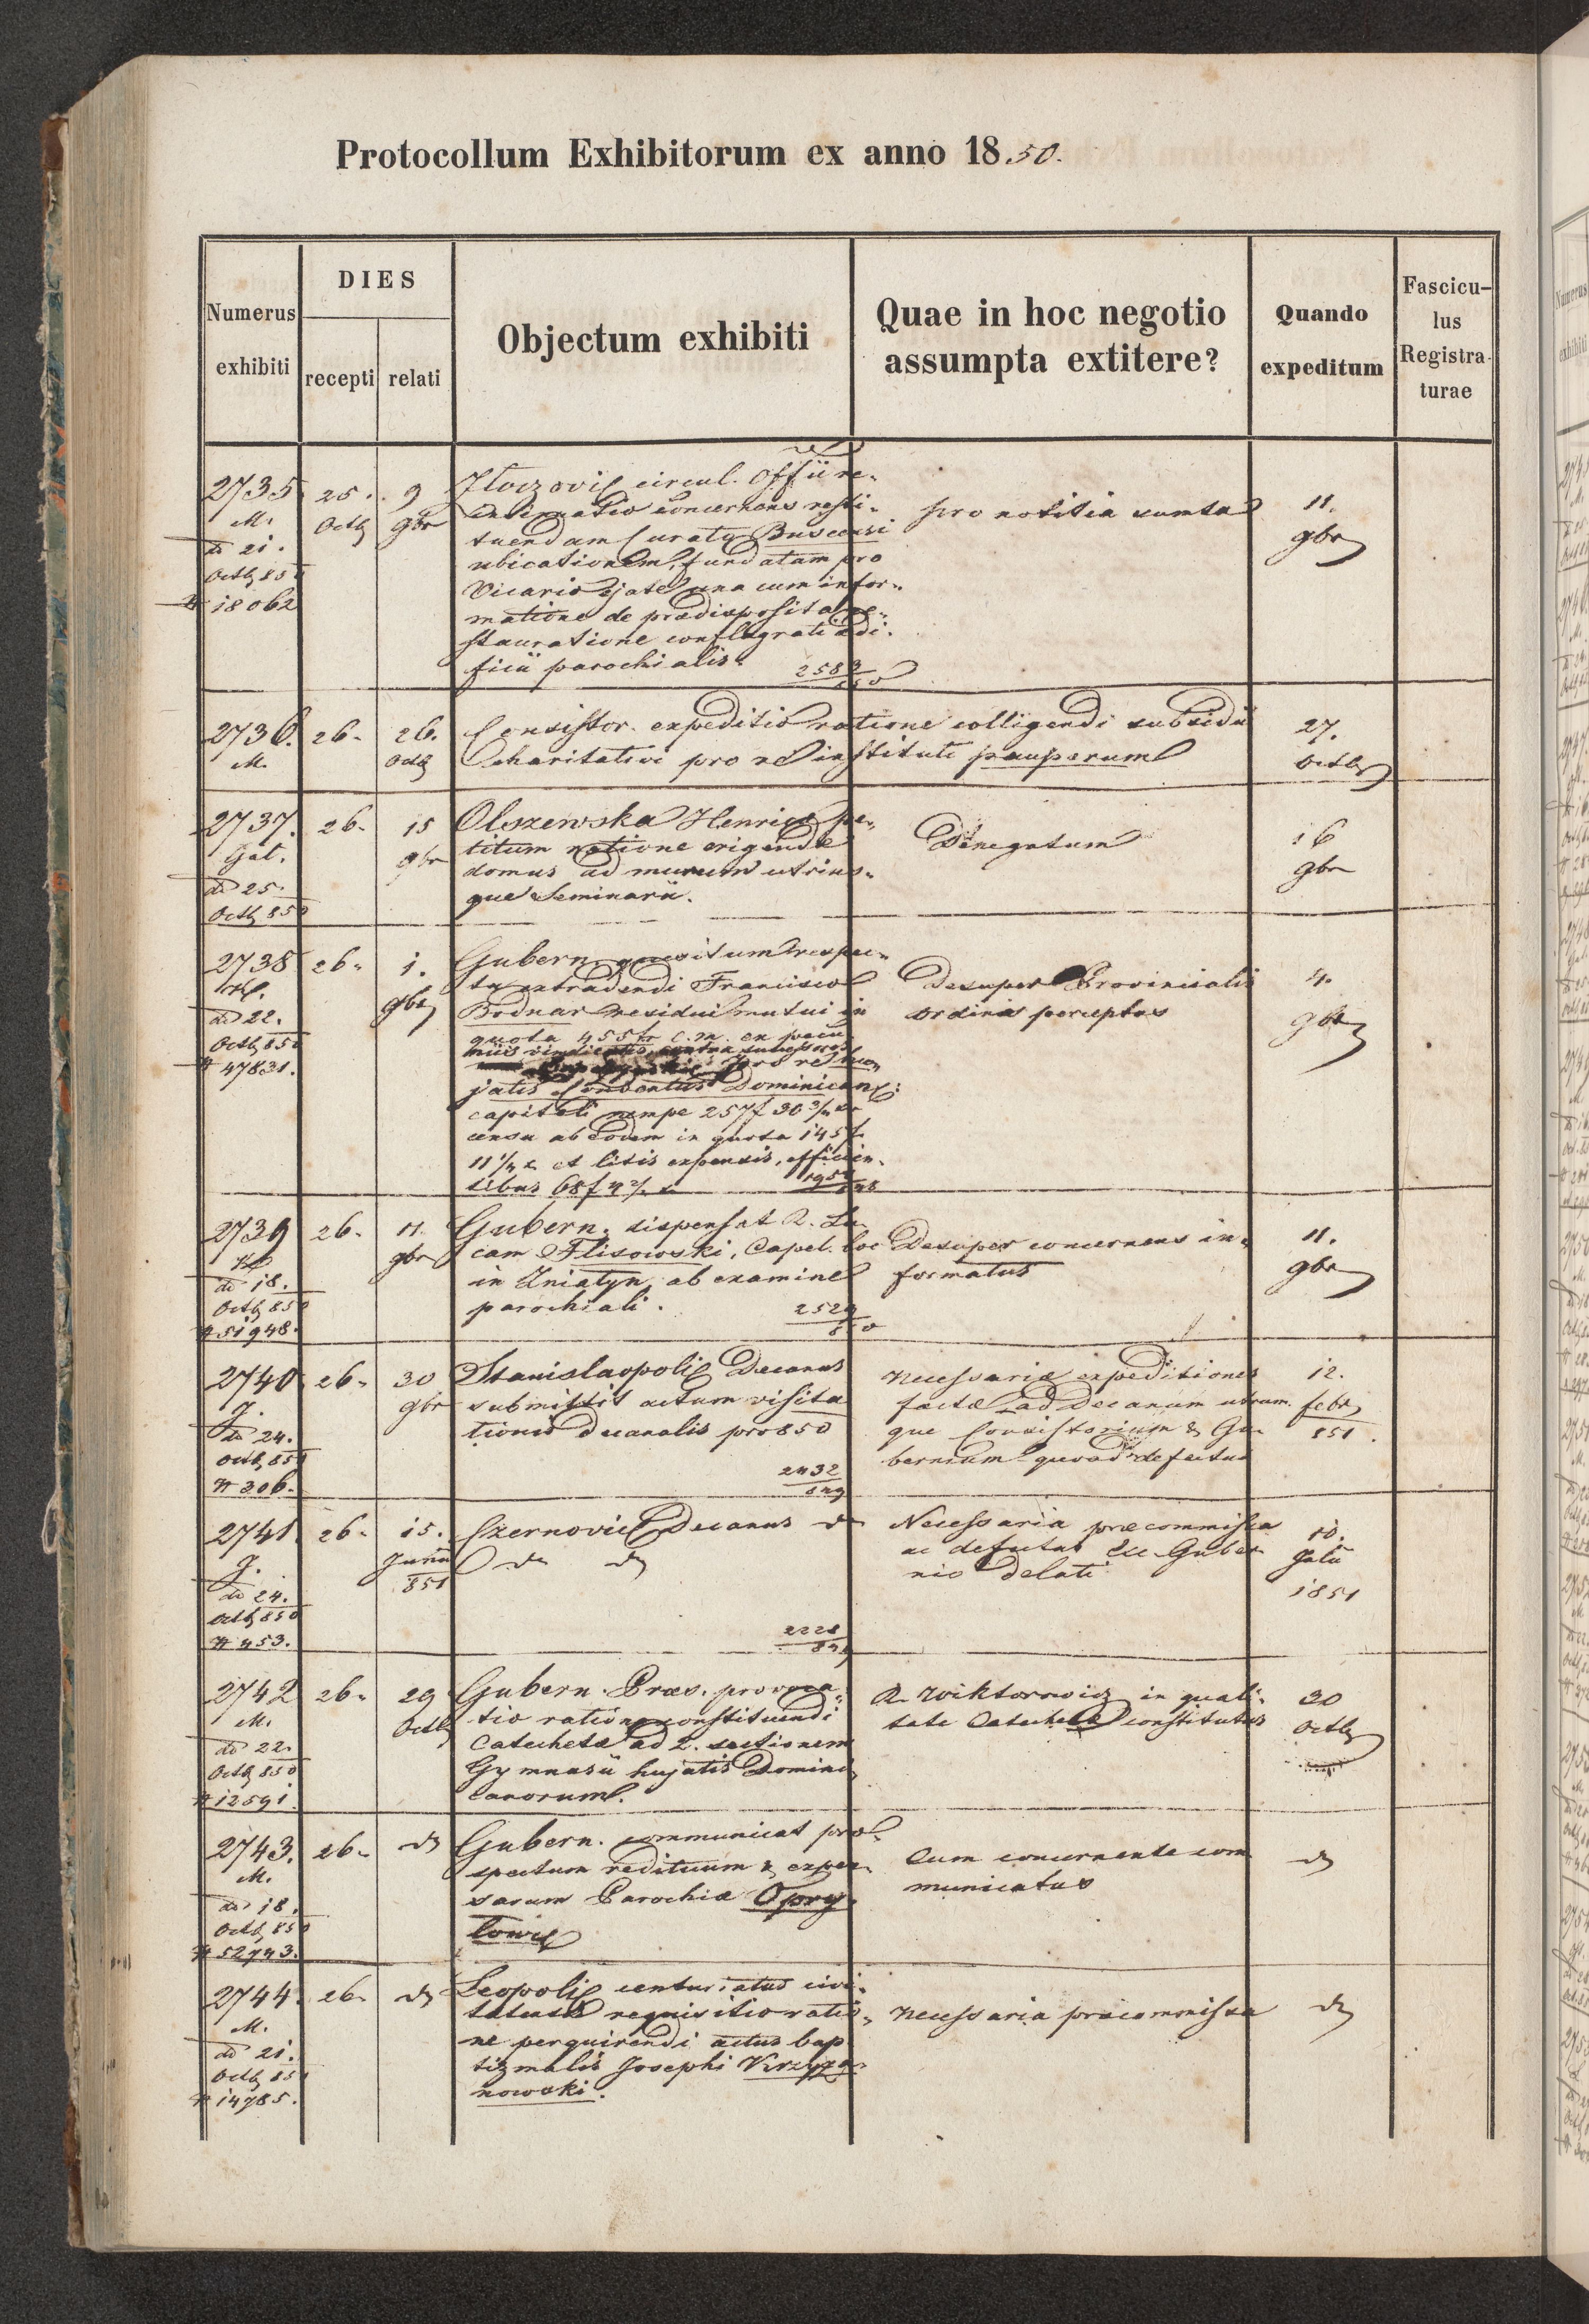 Protocollum Exhibitorum ex anno 1850.
Numerus exhibiti
DIES
recepti relati
Objectum exhibiti
Quae in hoc negotio assumpta extitere?
Quando expeditum
Fascicu-
lus
Registra-
turae
2735
M.
dd 21.
Octb 850
# 18062
25.
Octb
9
9br
circul. Officii re-
intimatio concernens resti-
tuendam Curato Buscensi
ubicationem, fundatam pro
Vicario una cum infor-
matione de praedisposita re-
stauratione conflagrati aedi-
ficii parochialis.
2583
850
pro notitia sumta
11.
9br
2736.
M.
26.
26.
Octb
Consistor. expeditio ratione colligendi subsidii
charitativi pro re instituti pauperum
27.
Octb
2737.
Gal.
dd 25.
Octb 850
26.
15
9br
Olszewska Henrica pe-
titum ratione erigendae
domus ad murum utrius-
que Seminarii.
Denegatum
16
9br
2738
dd 22.
Octb 850
# 47831.
26.
1.
9br
Gubern. quaesitum respec-
tu extradendi Francisco
Bodnar residui mutui in
quota 455 c. m. ex pecu
niis vindicatis, contra successores
pro re huc
jatis Conventus Dominican:
capitali nempe 257f 30 3/4 xr
censu ab eodem in quota 145f
11 1/4 x et litis expensis, efficien-
tibus 68f
Desuper Provincialis
ordinis perceptus
4.
9br
2739
dd 18.
Octb 850
# 51948.
26.
11.
9br
Gubern. dispensat R. Lu-
cam Flisowski, Capel. loc
in Uniatyn, ab examine
parochiali.
2529
850
Desuper concernens in-
formatus
11.
9br
2740
J.
dd 24.
Octb 850
# 306.
26.
30
9br
Stanislaopolis Decanus
submittit actum visita
tionis decanalis pro 850
2432
849
necessariae expeditiones
factae ad Decanum utrum-
que Consistorium & Gu-
bernium quoad defectus
12.
febr
851.
2741
J.
dd 24.
Octb 850
# 453.
26.
15.
Junii
851
Czernovic Decanus do
do do
2228
849
Necessaria praecommissa
ac defectus Guber
nio delati
10.
Julii
1851
2742
M.
dd 22.
Octb 850
# 12591.
26.
29
Octb
Gubern. Praes. provoca-
tio ratione constituendi
Catechetae ad 2. sectionem
Gymnasii hujatis Domini
canorum.
R. Wiktorowicz in quali-
tate Catechetae constitutus
30
Octb
2743.
M.
dd 18.
Octb 850
# 52743.
26.
do
Gubern. communicat pro-
spectum redituum & expen-
sarum Parochiae Opry-
lowic
Cum concernente com
municatus
do
2744.
M.
dd 21.
Octb 850
# 14785.
26.
do
Leopolis centuriatus civi-
tatensis requisitio ratio-
ne perquirendi actus bap
tizmalis Josephi Krzyza-
nowski.
necessaria praecommissa
do